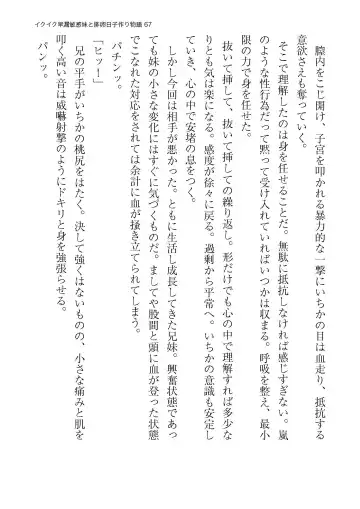 イクイク早漏敏感妹と排卵日子作り物語 67
膣内をこじ開け、子宮を叩かれる暴力的な一撃にいちかの目は血走り、抵抗する
意欲さえも奪っていく。
そこで理解したのは身を任せることだ。無駄に抵抗しなければ感じすぎない。嵐
のような性行為だって黙って受け入れていればいつかは収まる。呼吸を整え、最小
限の力で身を任せた。
抜いて挿して、抜いて挿しての繰り返し。形だけでも心の中で理解すれば多少な
りとも気は楽になる。感度が徐々に戻る。過剰から平常へ。いちかの意識も安定し
ていき、心の中で安堵の息をつく。
しかし今回は相手が悪かった。ともに生活し成長してきた兄妹。興奮状態であっ
ても妹の小さな変化にはすぐに気づくものだ。ましてや股間と頭に血が登った状態
でこなれた対応をされては余計に血が掻き立てられてしまう。
パチンッ。
「ヒッ！」
兄の平手がいちかの桃尻をはたく。決して強くはないものの、小さな痛みと肌を
叩く高い音は威嚇射撃のようにドキリと身を強張らせる。
パンッ。